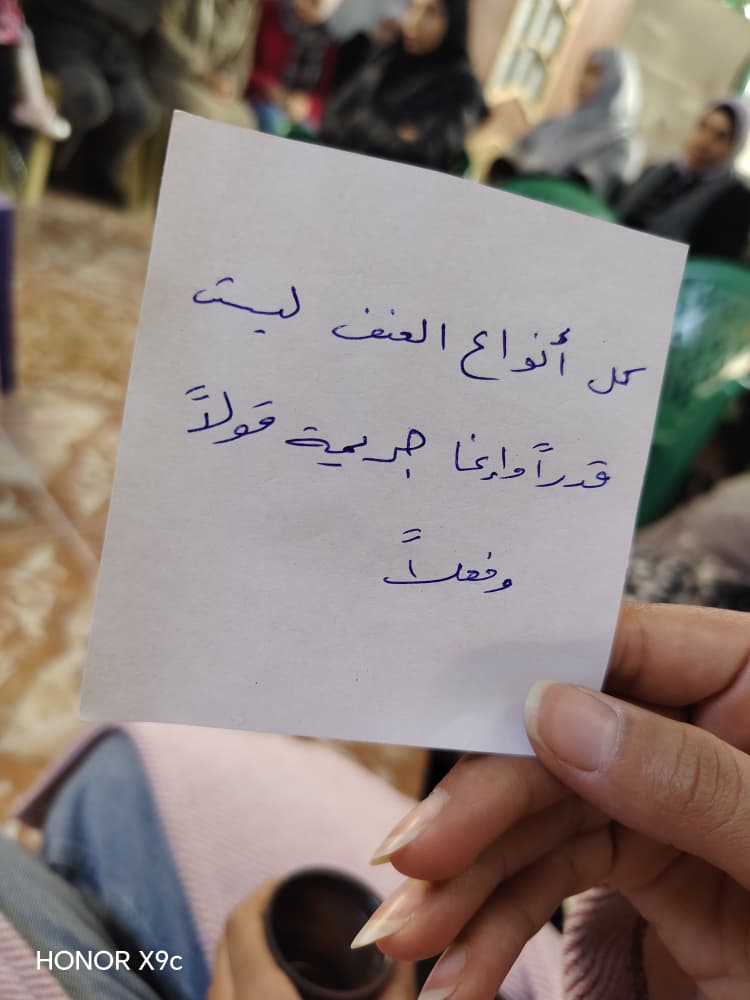 كل أنواع العنف ليست
قدراً وإنما جريمة قولاً
وفعلاً
HONOR X9c